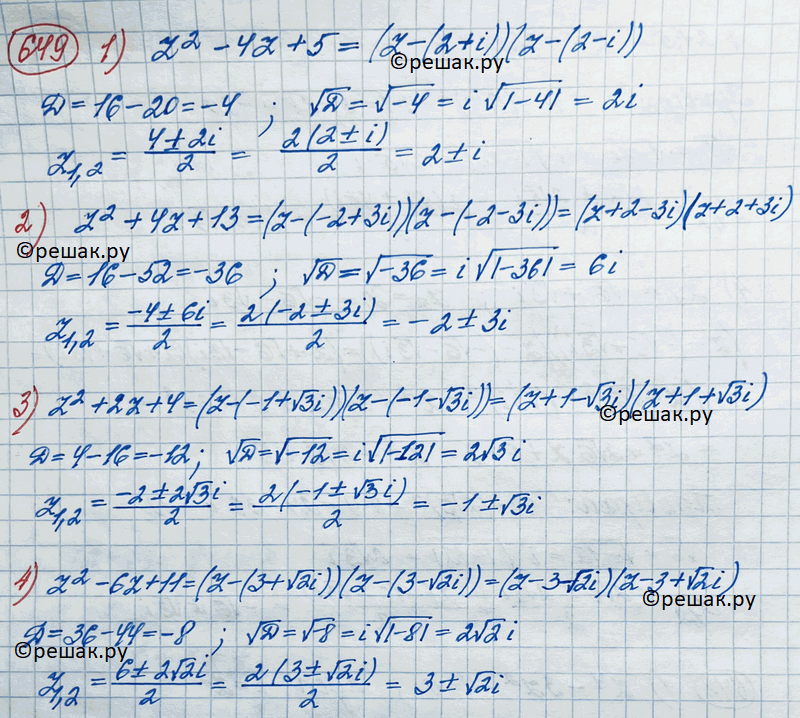 649 1) z² - 4z + 5 = (z-(2+i))(z-(2-i))
©решак.ру
D = 16 - 20 = -4 ; √D = √-4 = i√|-4| = 2i
z₁,₂ = (4 ± 2i)/2 = 2(2 ± i)/2 = 2 ± i
2) z² + 4z + 13 = (z-(-2+3i))(z-(-2-3i)) = (z+2-3i)(z+2+3i)
©решак.ру
D = 16 - 52 = -36 ; √D = √-36 = i√|-36| = 6i
z₁,₂ = (-4 ± 6i)/2 = 2(-2 ± 3i)/2 = -2 ± 3i
3) z² + 2z + 4 = (z-(-1+√3i))(z-(-1-√3i)) = (z+1-√3i)(z+1+√3i)
©решак.ру
D = 4 - 16 = -12 ; √D = √-12 = i√|-12| = 2√3i
z₁,₂ = (-2 ± 2√3i)/2 = 2(-1 ± √3i)/2 = -1 ± √3i
4) z² - 6z + 11 = (z-(3+√2i))(z-(3-√2i)) = (z-3-√2i)(z-3+√2i)
©решак.ру
D = 36 - 44 = -8 ; √D = √-8 = i√|-8| = 2√2i
©решак.ру
z₁,₂ = (6 ± 2√2i)/2 = 2(3 ± √2i)/2 = 3 ± √2i